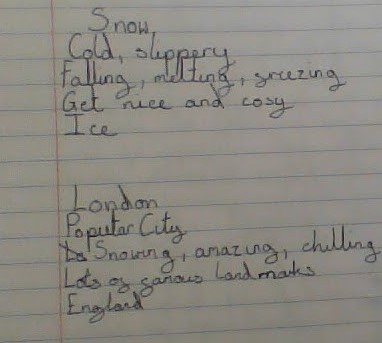 Snow
Cold, slippery
Falling, melting, freezing
Get nice and cosy
Ice
London
Popular City
Snowing, amazing, chilling
Lots of famous landmaks
England